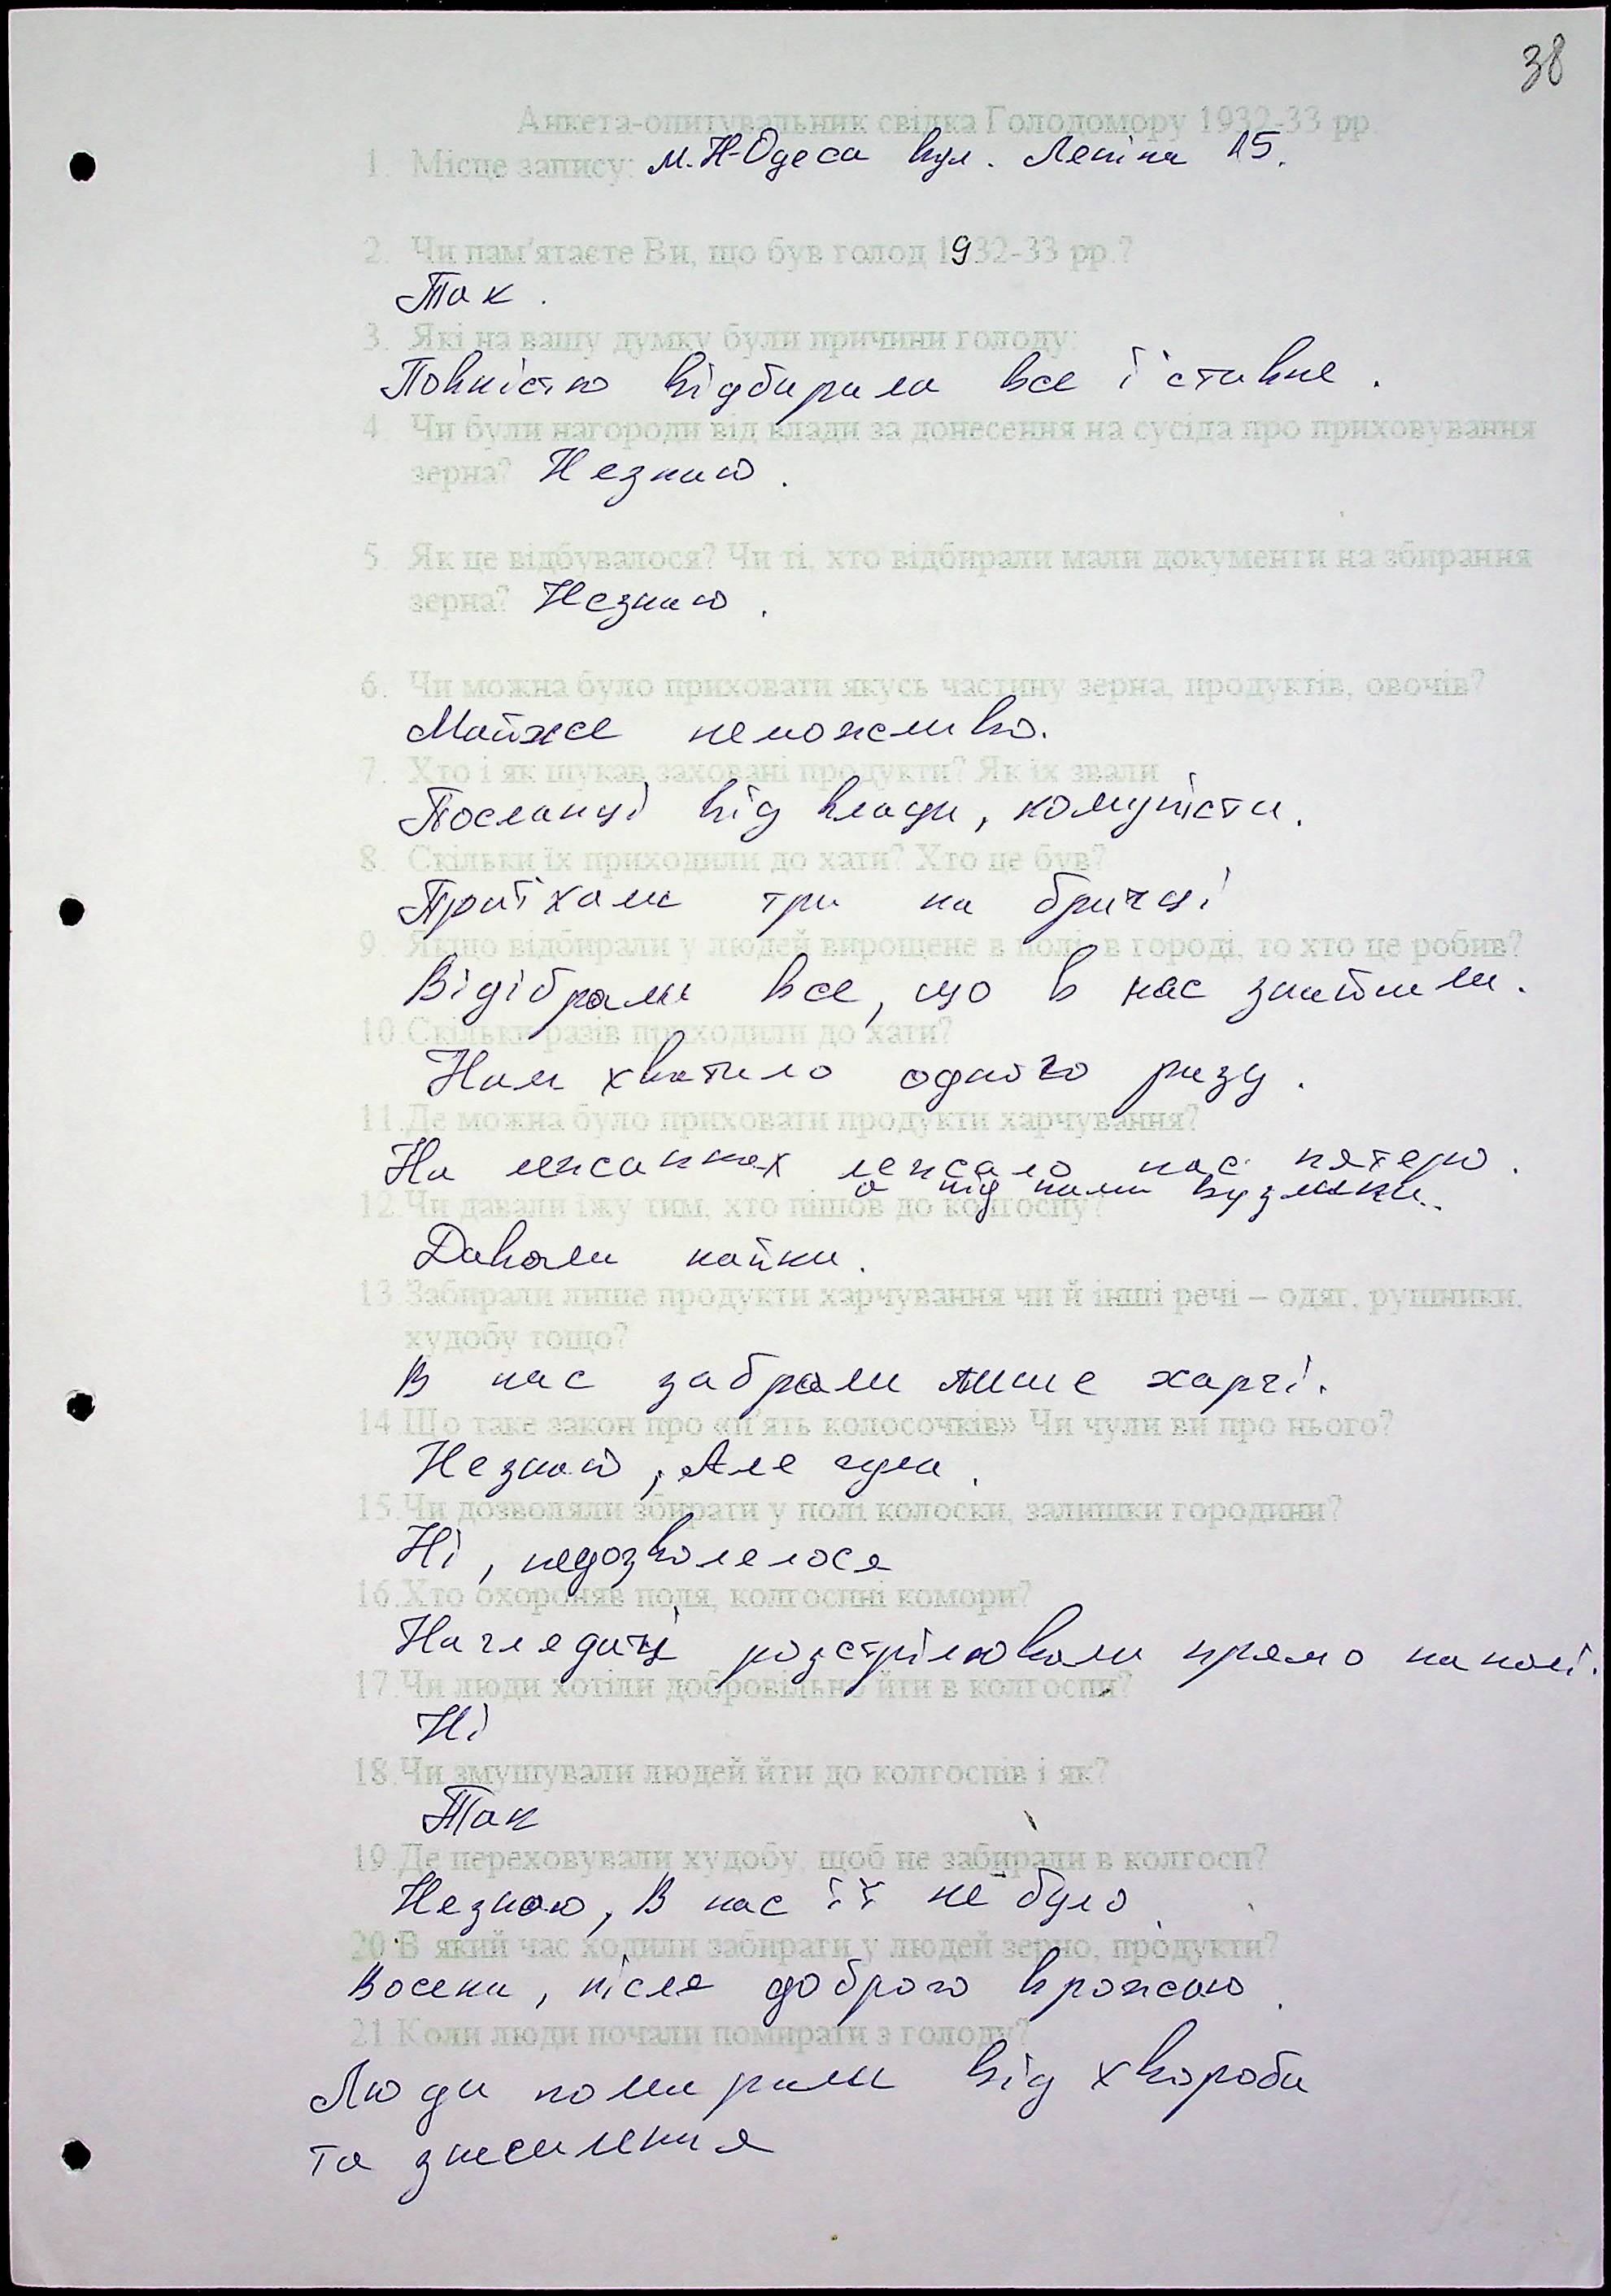 38
Анкета-опитувальник свідка Голодомору 1932-33 рр
1. Місце запису: м. Н-Одеса вул. Леніна 15.
2. Чи пам'ятаєте Ви, що був голод 1932-33 рр.?
Так.
3. Які на вашу думку були причини голоду:
Повністю відбирали все їстивне.
4. Чи були нагороди від влади за донесення на сусіда про приховування
зерна? Незнаю.
5. Як це відбувалося? Чи ті, хто відбирали мали документи на збирання
зерна? Незнаю.
6. Чи можна було приховати якусь частину зерна, продуктів, овочів?
Майже неможливо.
7. Хто і як шукав заховані продукти? Як їх звали
Посланці від влади, комуністи.
8. Скільки їх приходили до хати? Хто це був?
Приїхали три на бричці
9. Якщо відбирали у людей вирощене в полі, в городі, то хто це робив?
Відібрали все, що в нас знайшли.
10.Скільки разів приходили до хати?
Нам хватило одного разу.
11.Де можна було приховати продукти харчування?
На лежанках лежало нас пятеро.
а під нами вузлики.
12.Чи давали їжу тим, хто пішов до колгоспу?
Давали пайки.
13.Забирали лише продукти харчування чи й інші речі – одяг, рушники,
худобу тощо?
В нас забрали лише харчі.
14.Що таке закон про «п'ять колосочків» Чи чули ви про нього?
Незнаю, Але чула.
15.Чи дозволяли збирати у полі колоски, залишки городини?
Ні, недозволялося
16.Хто охороняв поля, колгоспні комори?
Наглядачі розстрілювали прямо на полі.
17.Чи люди хотіли добровільно йти в колгоспи?
Ні
18.Чи змушували людей йти до колгоспів і як?
Так
19.Де переховували худобу, щоб не забирали в колгосп?
Незнаю, В нас її не було.
20.В який час ходили забирати у людей зерно, продукти?
Восени, після доброго врожаю.
21.Коли люди почали помирати з голоду?
Люди помирали від хвороби
та знесилення